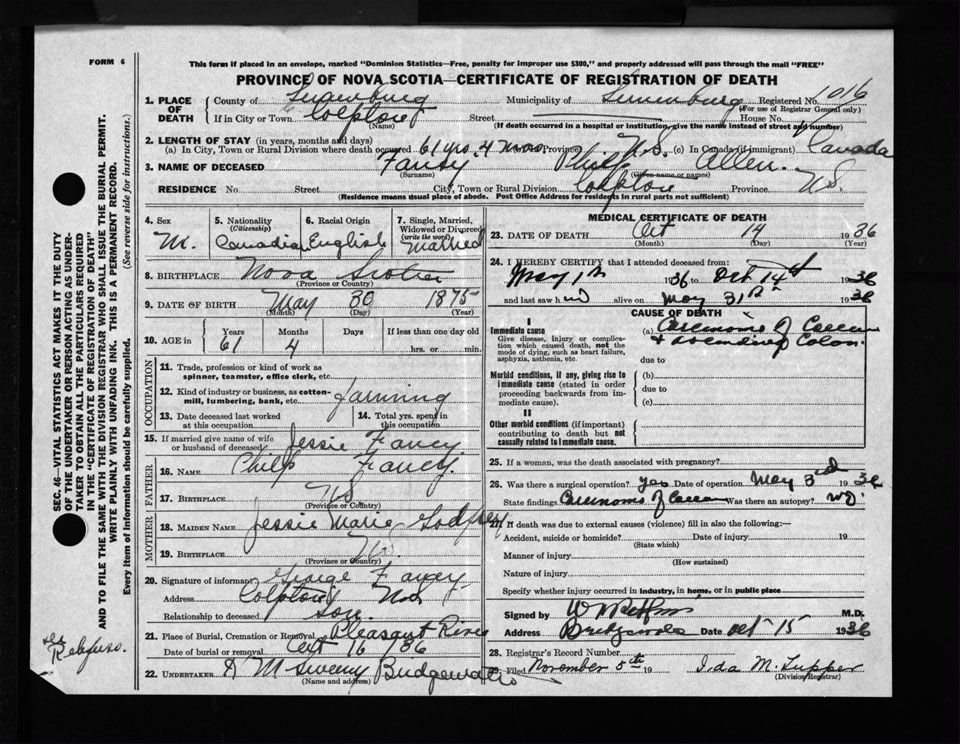 FORM 6
This form if placed in an envelope, marked "Dominion Statistics—Free, penalty for improper use $300," and properly addressed will pass through the mail "FREE"
PROVINCE OF NOVA SCOTIA—CERTIFICATE OF REGISTRATION OF DEATH
1. PLACE OF DEATH County of Lunenburg Municipality of Lunenburg Registered No. 1016
(For use of Registrar General only)
If in City or Town Colpton Street House No.
(Name) (If death occurred in a hospital or institution, give the name instead of street and number)
2. LENGTH OF STAY (in years, months and days)
(a) In City, Town or Rural Division where death occurred 61 yrs. 4 mos. Province N.S. (c) In Canada (if immigrant) Canada
3. NAME OF DECEASED Fancy Philip Allen
(Surname) (Given name or names)
RESIDENCE No. Street City, Town or Rural Division Colpton Province N.S.
(Residence means usual place of abode. Post Office Address for residents in rural parts not sufficient)
4. Sex M.
5. Nationality (Citizenship) Canadian
6. Racial Origin English
7. Single, Married, Widowed or Divorced (write the word) Married
8. BIRTHPLACE Nova Scotia
(Province or Country)
9. DATE OF BIRTH May 30 1875
(Month) (Day) (Year)
10. AGE in Years 61 Months 4 Days If less than one day old hrs. or min.
OCCUPATION
11. Trade, profession or kind of work as spinner, teamster, office clerk, etc.
12. Kind of industry or business, as cotton-mill, lumbering, bank, etc. farming
13. Date deceased last worked at this occupation
14. Total yrs. spent in this occupation
15. If married give name of wife or husband of deceased Jessie Fancy
FATHER
16. NAME Philip Fancy
17. BIRTHPLACE N.S
(Province or Country)
MOTHER
18. MAIDEN NAME Jessie Marie Godfrey
19. BIRTHPLACE N.S.
(Province or Country)
20. Signature of informant George Fancy
Address Colpton N.S
Relationship to deceased son
21. Place of Burial, Cremation or Removal Pleasant River
Date of burial or removal Oct 16 / 36
22. UNDERTAKER Sweeny Bridgewater
(Name and address)
MEDICAL CERTIFICATE OF DEATH
23. DATE OF DEATH Oct 14 1936
(Month) (Day) (Year)
24. I HEREBY CERTIFY that I attended deceased from:
May 1st 1936 to Oct 14th 1936
and last saw him alive on May 31st 1936
CAUSE OF DEATH
I
Immediate cause
Give disease, injury or complication which caused death, not the mode of dying, such as heart failure, asphyxia, asthenia, etc.
(a) Carcinoma of Caecum
& Ascending Colon.
due to
Morbid conditions, if any, giving rise to immediate cause (stated in order proceeding backwards from immediate cause).
(b)
due to
(c)
II
Other morbid conditions (if important) contributing to death but not causally related to immediate cause.
25. If a woman, was the death associated with pregnancy?
26. Was there a surgical operation? yes Date of operation May 3rd 1936
State findings Carcinoma of Caecum Was there an autopsy? no
27. If death was due to external causes (violence) fill in also the following:—
Accident, suicide or homicide? Date of injury 19
(State which)
Manner of injury
(How sustained)
Nature of injury
Specify whether injury occurred in industry, in home, or in public place
Signed by M.D.
Address Bridgewater Date Oct 15 1936
28. Registrar's Record Number
29. Filed November 5th 19 Ida M. Tupper
(Division Registrar)
SEC. 46—VITAL STATISTICS ACT MAKES IT THE DUTY
OF THE UNDERTAKER OR PERSON ACTING AS UNDER-
TAKER TO OBTAIN ALL THE PARTICULARS REQUIRED
IN THE "CERTIFICATE OF REGISTRATION OF DEATH"
AND TO FILE THE SAME WITH THE DIVISION REGISTRAR WHO SHALL ISSUE THE BURIAL PERMIT.
WRITE PLAINLY WITH UNFADING INK. THIS IS A PERMANENT RECORD.
Every item of Information should be carefully supplied. (See reverse side for instructions.)